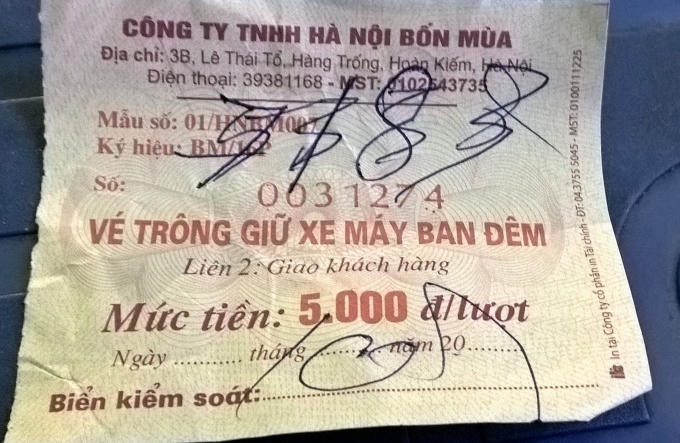 CÔNG TY TNHH HÀ NỘI BỐN MÙA
Địa chỉ: 3B, Lê Thái Tổ, Hàng Trống, Hoàn Kiếm, Hà Nội
Điện thoại: 39381168 - MST: 0102543735
Mẫu số: 01/HNBM007
Ký hiệu: BM/16P
Số: 0031274
VÉ TRÔNG GIỮ XE MÁY BAN ĐÊM
Liên 2: Giao khách hàng
Mức tiền: 5.000 đ/lượt
Ngày ............ tháng ............ năm 20..........
Biển kiểm soát:
In tại Công ty cổ phần in Tài chính - ĐT: 04.3755 5045 - MST: 0100111225